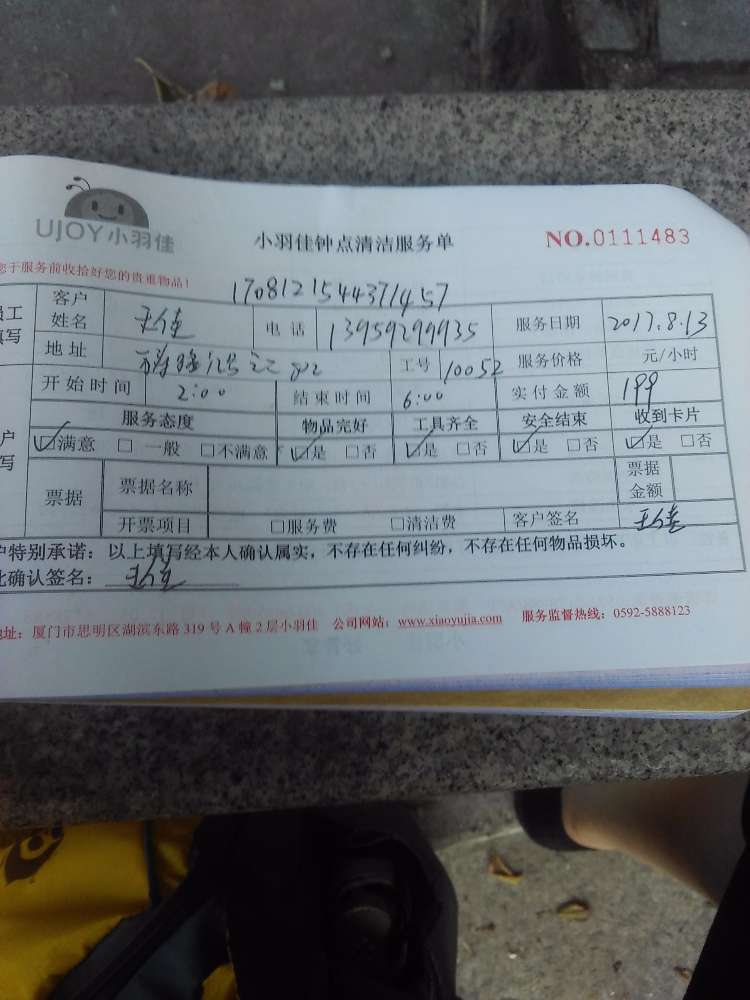 UJOY小羽佳
小羽佳钟点清洁服务单
NO.0111483
您于服务前收拾好您的贵重物品!
1708121544371457
员工
填写
客户
姓名
电话 13959299935 服务日期 2017.8.13
地址 802 工号 10052 服务价格 元/小时
开始时间 2:00 结束时间 6:00 实付金额 199
服务态度 物品完好 工具齐全 安全结束 收到卡片
☑满意 □ 一般 □不满意 ☑是 □否 ☑是 □否 ☑是 □否 ☑是 □否
户
写
票据 票据名称 票据
金额
开票项目 □服务费 □清洁费 客户签名
户特别承诺:以上填写经本人确认属实,不存在任何纠纷,不存在任何物品损坏。
此确认签名:
地址:厦门市思明区湖滨东路 319 号 A 幢 2 层小羽佳 公司网站:www.xiaoyujia.com 服务监督热线:0592-5888123